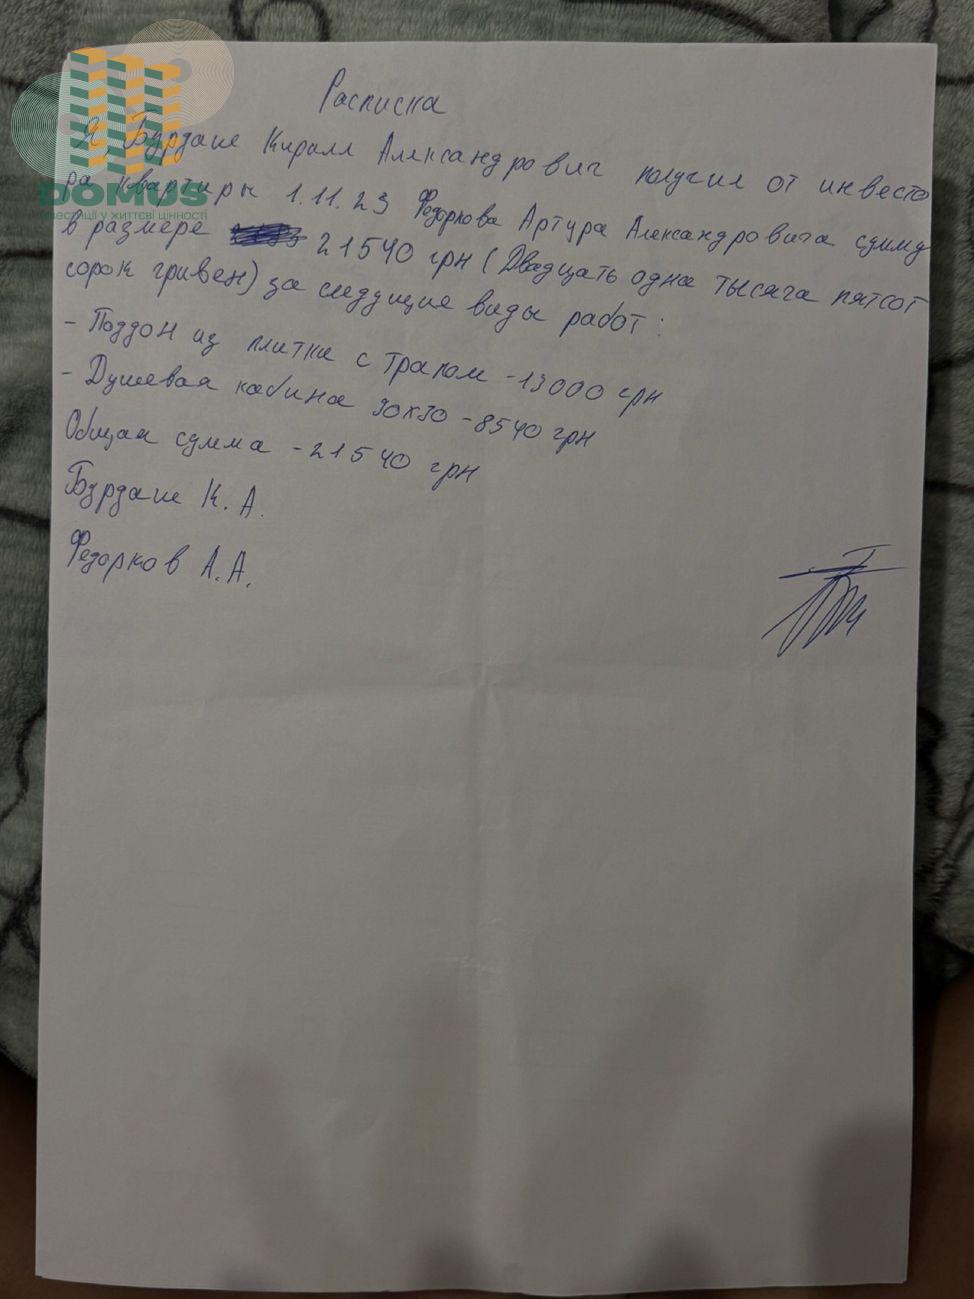 DOMUS
інвестиції у життєві цінності
Расписка
Я, Бурдаше Кирилл Александрович получил от инвесто
ра квартиры 1.11.23 Федоркова Артура Александровича сумму
в размере 21540 грн (Двадцать одна тысяча пятсот
сорок гривен) за следущие виды работ:
- Поддон из плитки с трапом - 13000 грн
- Душевая кабина 90х90 - 8540 грн
Общая сумма - 21540 грн
Бурдаше К. А.
Федорков А.А.